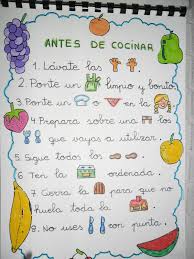 ANTES DE COCINAR
1. Lávate las
2. Ponte un limpio y bonito.
3. Ponte un o en la
4. Prepara sobre una los
que vayas a utilizar.
5. Sigue todos los
6. Ten la ordenada.
7. Cierra la para que no
huela toda la
8. No uses con punta.